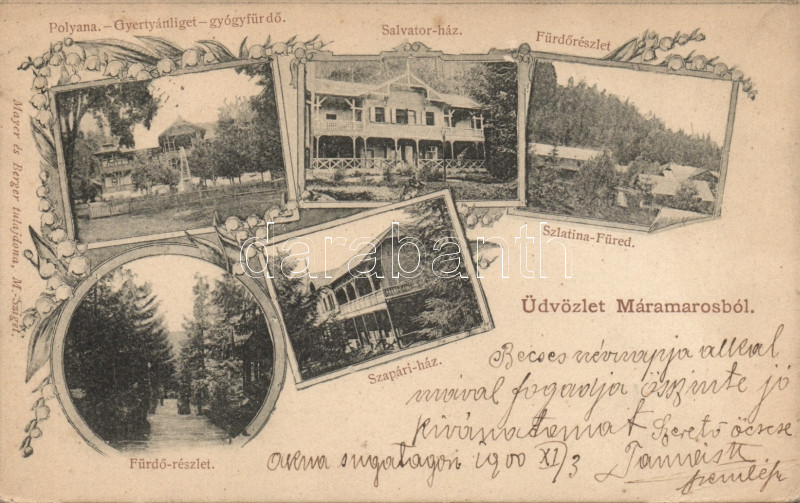 Polyana. – Gyertyánliget – gyógyfürdő.
Salvator-ház.
Fürdőrészlet
Mayer és Berger tulajdona, M-Sziget.
darabanth
Szlatina-Füred.
Üdvözlet Máramarosból.
Szapári-ház.
Fürdő-részlet.
Becses névnapja alkal
mával fogadja őszinte jó
kivánatomat Szerető öcscse
Akna sugatagon 1900 XI/3